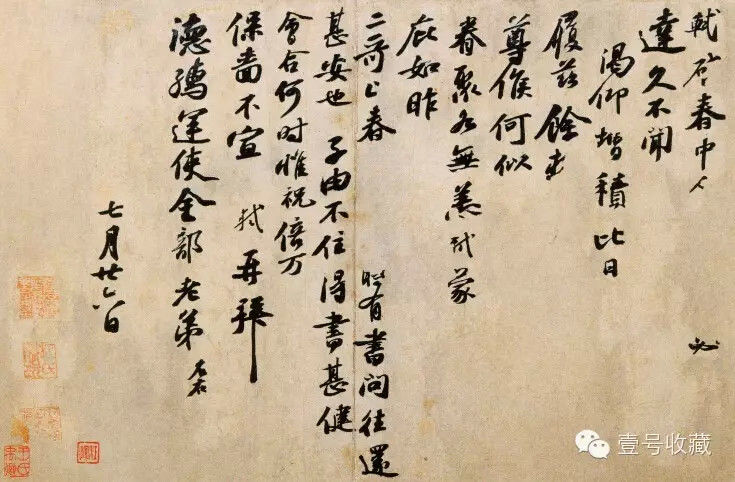 軾啓春中 必
達久不聞
渴仰增積比日
履茲餘
尊候何似
眷聚各無恙軾蒙
庇如昨
二哥上春 時有書問往還
甚安也 子由不住得書甚健
會合何時惟祝倍万
保嗇不宣 軾再拜
德孺運使金部老弟 左右
七月廿六日
壹号收藏